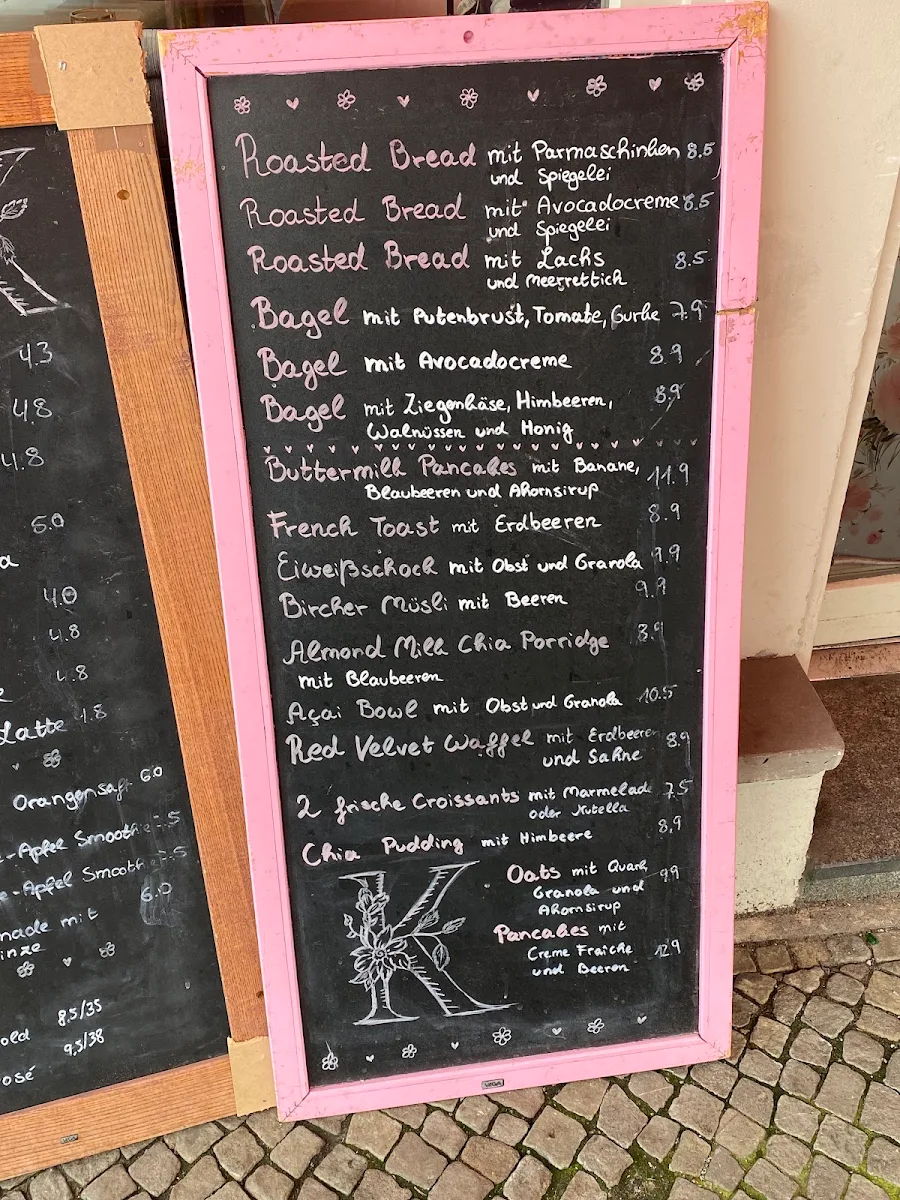 4.3
4.8
4.8
6.0
4.0
4.8
4.8
Latte 4.8
Orangensaft 6.0
-Apfel Smoothie
-Apfel Smoothie
6.0
nade mit
inze
old 8,5/35
9,5/38
osé
Roasted Bread mit Parmaschinken 8.5
und Spiegelei
Roasted Bread mit Avocadocreme 8.5
und Spiegelei
Roasted Bread mit Lachs 8.5
und Meerrettich
Bagel mit Putenbrust, Tomate, Gurke 7.9
Bagel mit Avocadocreme 8.9
Bagel mit Ziegenkäse, Himbeeren, 8.9
Walnüssen und Honig
Buttermilk Pancakes mit Banane, 11.9
Blaubeeren und Ahornsirup
French Toast mit Erdbeeren 8.9
Eiweißschock mit Obst und Granola 9.9
Bircher Müsli mit Beeren 9.9
Almond Milk Chia Porridge 8.9
mit Blaubeeren
Açai Bowl mit Obst und Granola 10.5
Red Velvet Waffel mit Erdbeeren 8.9
und Sahne
2 frische Croissants mit Marmelade 7.5
oder Nutella
Chia Pudding mit Himbeere 8,9
K
Oats mit Quark 9.9
Granola und
Ahornsirup
Pancakes mit
Creme Fraiche 12.9
und Beeren
VEGA